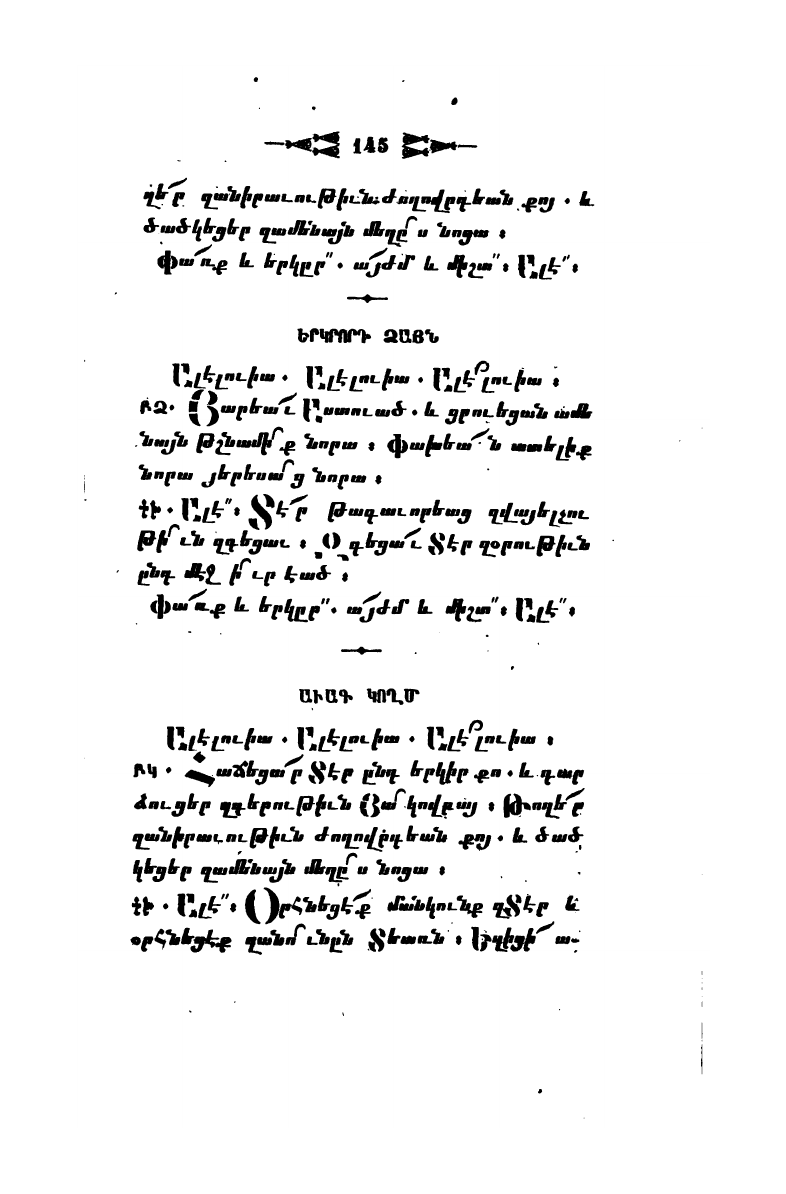 145
ղե՜ր զանիրաւութիւն ժողովրդեան քոյ . և
ծածկեցեր զամենայն մեղը՟ս նոցա ։
Փա՜ռք և երկըր՟ . ա՜յժմ և միշտ՟ ։ Ալէ՟ ։
ԵՐԿՐՈՐԴ ՁԱՅՆ
Ալէլուիա . Ալէլուիա . Ալէ՟լուիա ։
ԲՁ. Յարեա՜ւ Աստուած . և ցրուեցան ամե
նայն թշնամի՟ք նորա ։ Փախեա՜ն ատելիք
նորա յերեսա՟ց նորա ։
ԷԻ . Ալէ՟ ։ Տէ՜ր թագաւորեաց զվայելչու
թի՟ւն զգեցաւ ։ Զգեցա՜ւ Տէր զօրութիւն
ընդ մէջ ի՟ւր էած ։
Փա՜ռք և երկըր՟ . ա՜յժմ և միշտ՟ ։ Ալէ՟ ։
ԱՒԱԳ ԿՈՂՄ
Ալէլուիա . Ալէլուիա . Ալէ՟լուիա ։
ԲԿ . Հաճեցա՜ր Տէր ընդ երկիր քո . և դար
ձուցեր զգերութիւն Յա՟կովբայ ։ Թողե՜ր
զանիրաւութիւն ժողովրդեան քոյ . և ծած
կեցեր զամենայն մեղը՟ս նոցա ։
ԷԻ . Ալէ՟ ։ Օրհնեցէ՜ք մանկունք զՏէր և
օրհնեցէք զանո՟ւնըն Տեառն ։ Եղիցի՜ ա-